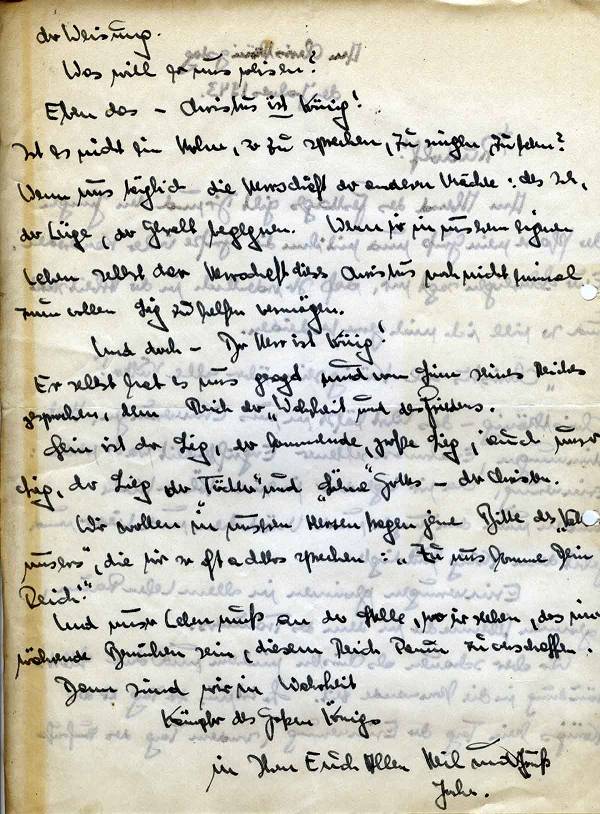 der Weisung.
Was will er uns weisen?
Eben das – Christus ist König!
Ist es nicht ein Hohn, so zu sprechen, zu singen, zu beten?
Wenn uns täglich die Herrschaft der anderen Mächte: des
der Lüge, der Gewalt begegnen. Wenn wir in unserem eignen
Leben selbst der Herrschaft dieses Christus noch nicht einmal
zum vollen Sieg zu helfen vermögen.
Und doch – Der Herr ist König!
Er selbst hat es uns gesagt und von seines Reiches
gesprochen, dem Reich der „Wahrheit und des Friedens.
Sein ist der Sieg, der kommende, große Sieg, auch unser
Sieg, der Sieg der „Töchter" und „Söhne" Gottes – der Christen.
Wir wollen in unseren Herzen tragen jene Bitte des „Vater
unsers", die wir so oft sprechen: „Zu uns komme Dein
Reich!"
Und unser Leben muß an der Stelle, wo wir stehen, das
währende Bemühen sein, diesem Reich Raum zu verschaffen.
Dann sind wir in Wahrheit
Kämpfer des großen Königs
in Ihm Euch Allen Heil und Gruß